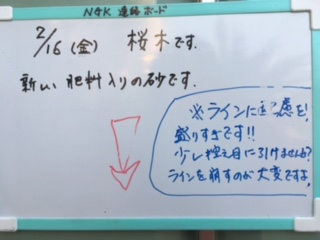 NGK 連絡ボード
2/16(金) 桜木です.
新しい肥料入りの砂です.
※ラインに 慮を!
盛りすぎです!!
少し控え目に引けませんか?
ラインを崩すのが大変ですよ.